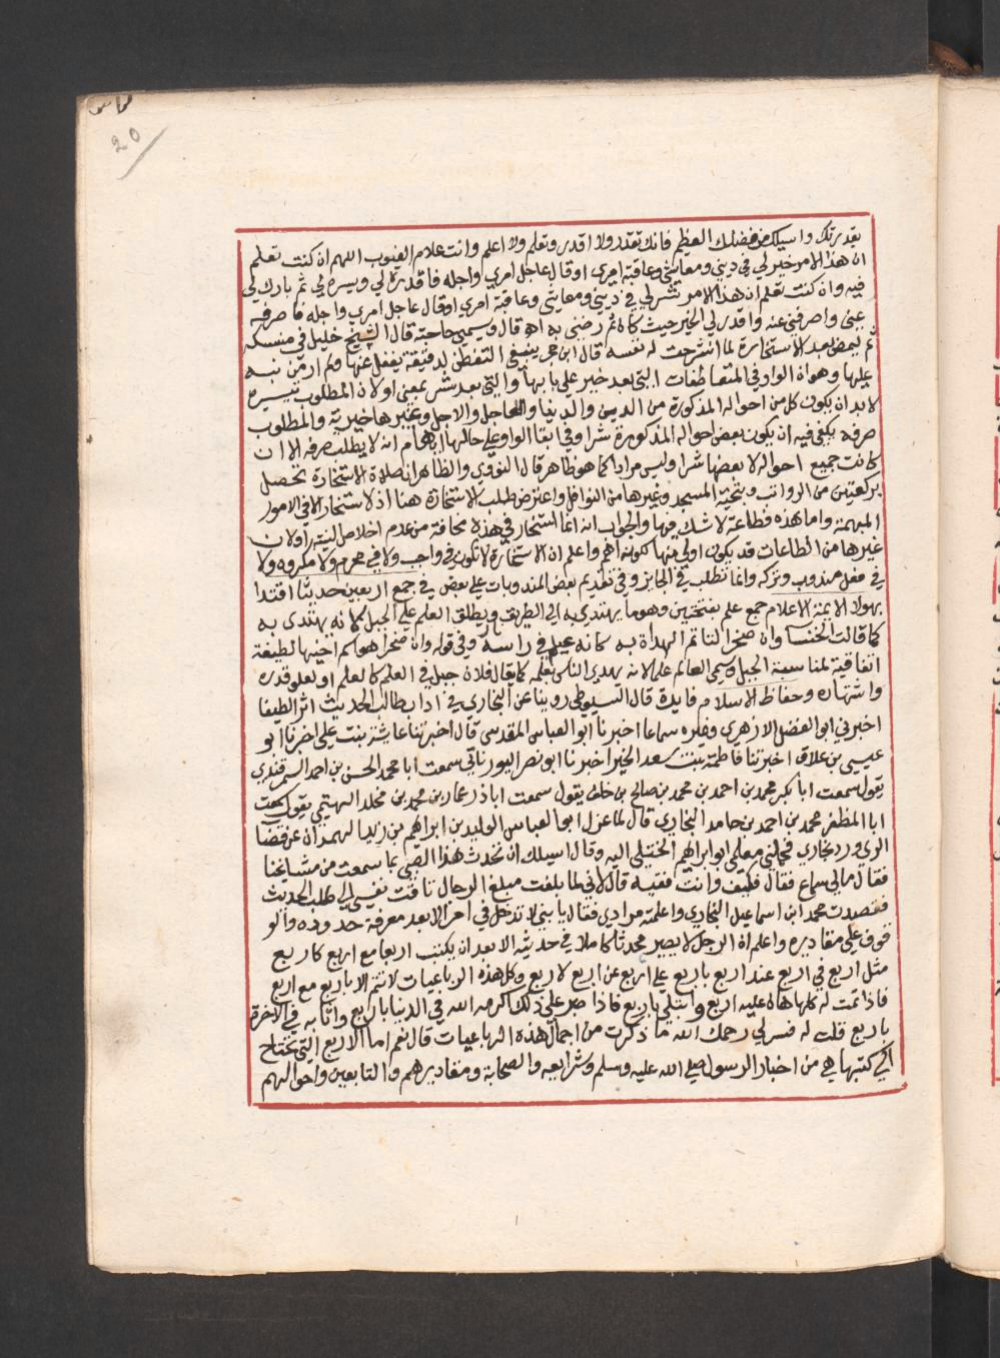 20
بقدرتك واسيلك من فضلك العظيم فانك تقدر ولا اقدر وتعلم ولا اعلم وانت علام الغيوب اللهم ان كنت تعلم
ان هذا الامر خير لي في ديني ومعاشي وعاقبة امري او قال عاجل امري واجله فاقدره لي ويسره لي ثم بارك لي
فيه وان كنت تعلم ان هذا الامر شر لي في ديني ومعاشي وعاقبة امري او قال عاجل امري واجله فاصرفه
عني واصرفني عنه واقدر لي الخير حيث كان ثم رضني به او قال ويسمي حاجته قال الشيخ خليل في منسكه
ثم ليمض بعد الاستخارة لما انشرحت له نفسه قال ابن حجر ينبغي التفطن لدقيقة يغفل عنها ولم ار من نبه
عليها وهو ان الواو في المتعاطفات التي بعد خير علي بابها والتي بعد شر بمعني او لان المطلوب تيسيره
لا بد ان يكون كل من احواله المذكورة من الدين والدنيا والعاجل والاجل وغيرها خيرية والمطلوب
صرفه يكفي فيه ان يكون بعض احواله المذكورة شرا وفي ابقا الواو علي حالها ايهام انه لا يطلب صرفه الا ان
كانت جميع احواله لا بعضها شرا وليس مرادا كما هو ظاهر قال النووي والظاهر ان صلاة الاستخارة تحصل
بركعتين من الرواتب وبتحية المسجد وغيرها من النوافل واعترض طلب الاستخارة هنا اذ لا استخار الا في الامور
المبهمة واما هذه فطاعة لا شك فيها والجواب انه انما استخار في هذه مخافة من عدم اخلاص النية او لان
غيرها من الطاعات قد يكون اولي منها لكونه اهم واعلم ان الاستخارة لا تكون في واجب ولا في محرم ولا مكروه ولا
في فعل مندوب وتركه وانما تطلب في الجايز وفي تقديم بعض المندوبات علي بعض في جمع اربعين حديثا اقتدا
بهولا الايمة الاعلام جمع علم بفتحتين وهو ما يهتدي به الي الطريق ويطلق العلم علي الجبل لانه يهتدي به
كما قالت الخنسا وان صخرا لتاتم الهداة به كانه علم في راسه وفي قوله وان صخرا هو اسم اخيها لطيفة
اتفاقية لمناسبة الجبل وسمي العالم علما لانه يهدي الناس بعلمه كما يقال فلان جبل في العلم كالعلم او لعلو قدره
واشتهاره وحفاظ الاسلام فايدة قال السيوطي روينا عن البخاري في اداب طالب الحديث اثرا لطيفا
اخبرني ابو الفضل الازهري وغيره سماعا اخبرنا ابو العباس المقدسي قال اخبرتنا عائشة بنت علي اخبرنا ابو
عيسي بن علاق اخبرتنا فاطمة بنت سعد الخير اخبرنا ابو نصر اليورناني سمعت ابا محمد الحسن بن احمد السمرقندي
يقول سمعت ابا بكر محمد بن احمد بن محمد بن صالح بن خلف يقول سمعت ابا ذر عمار بن محمد بن مخلد التهيمي يقول سمعت
ابا المظفر محمد بن احمد بن حامد البخاري قال لما عزل ابو العباس الوليد بن ابراهيم بن زيد الهمداني عن قضا
الري ورد بخاري فحملني معلمي ابو ابراهيم الختيلي اليه وقال اسيلك ان تحدث هذا الصبي بما سمعت من مشايخنا
فقال مالي سماع فقال فكيف وانت فقيه قال لاني لما بلغت مبلغ الرجال تاقت نفسي الي طلب الحديث
فقصدت محمد ابن اسماعيل البخاري واعلمته مرادي فقال يا بني لا تدخل في امر الا بعد معرفة حدوده والو
قوف علي مقاديره واعلم ان الرجل لا يصير محدثا كاملا في حديثه الا بعد ان يكتب اربعا مع اربع كاربع
مثل اربع في اربع عند اربع باربع علي اربع عن اربع لاربع وكل هذه الرباعيات لا تتم الا باربع مع اربع
فاذا تمت له كلها هان عليه اربع وابتلي باربع فاذا صبر علي ذلك اكرمه الله في الدنيا باربع واثابه في الاخرة
باربع قلت له فسر لي رحمك الله ما ذكرت من اجمال هذه الرباعيات قال نعم اما الاربع التي تحتاج
الي كتبها هي من اخبار الرسول صلي الله عليه وسلم وشرايعه والصحابة ومقاديرهم والتابعين واحوالهم